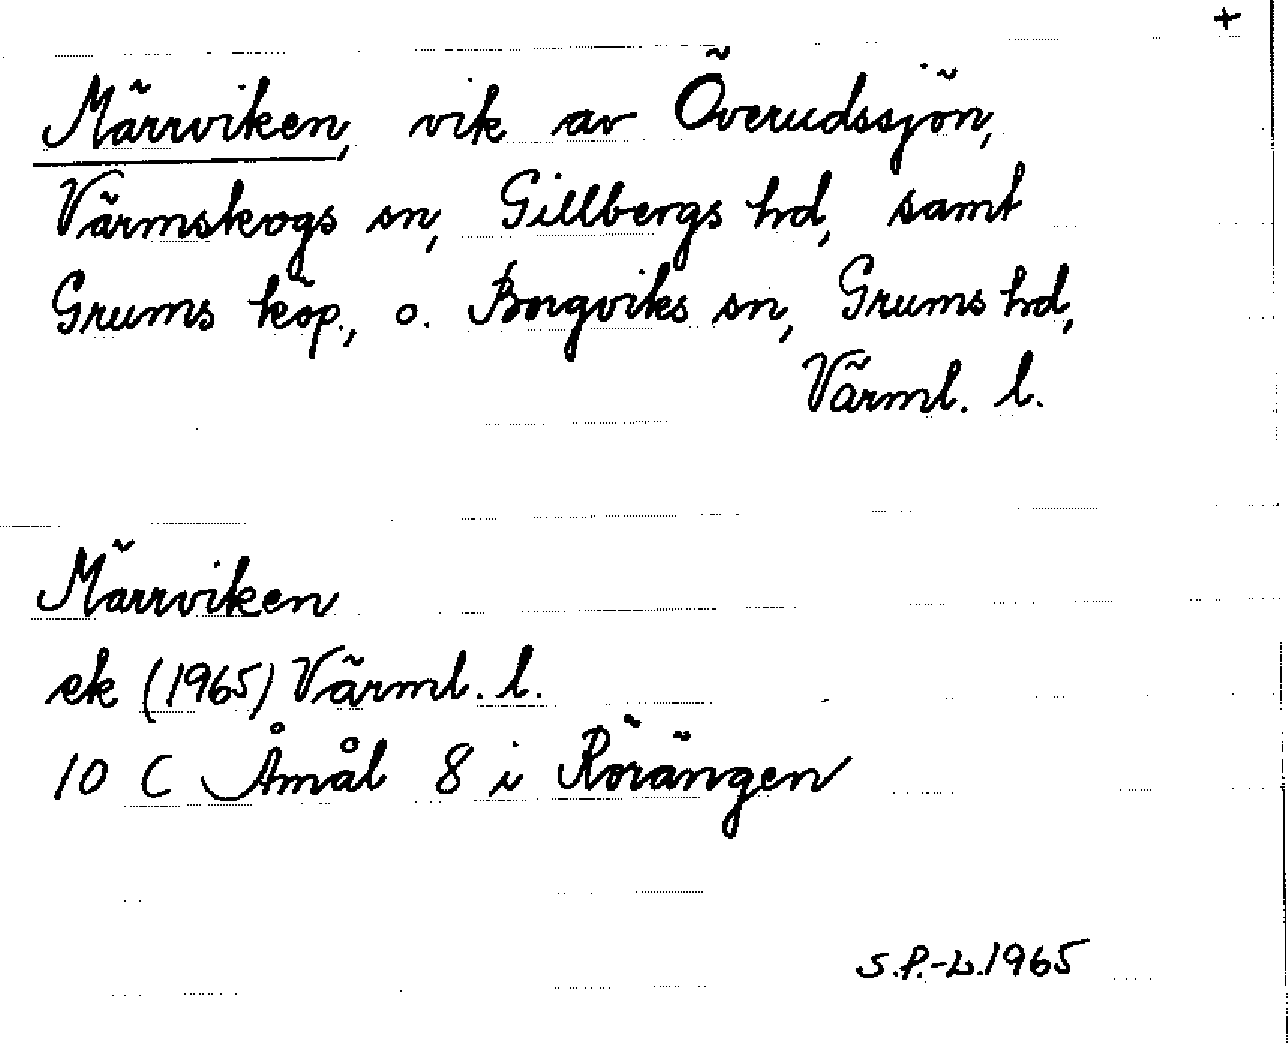 +
Märrviken, vik av Överudssjön,
Värmskogs sn, Gillbergs hd, samt
Grums köp., o. Borgviks sn, Grums hd,
Värml. l.
Märrviken
ek (1965) Värml. l.
10 C Åmål 8 i Rörängen
S.P.-L.1965